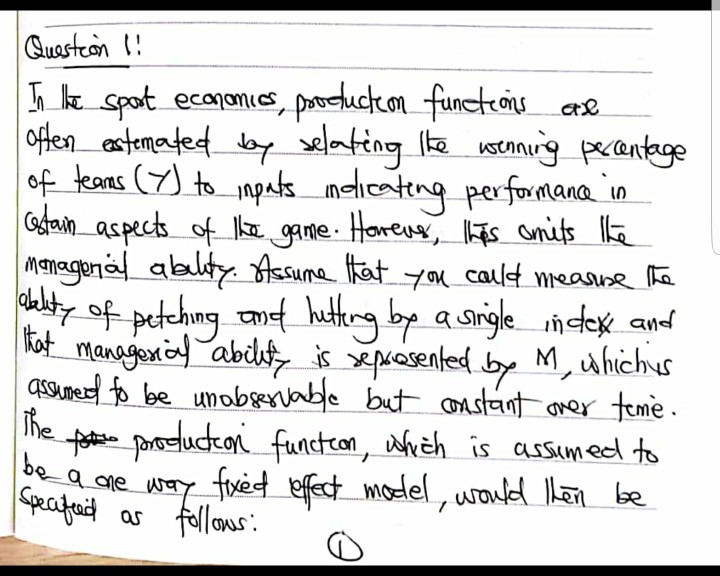 Question 1!
In the sport economics, production functions are
often estemated by relating the wenning percentage
of teams (Y) to inputs indicating performance in
certain aspects of the game. However, this omits the
managerial ability. Assume that you could measure the
ability of petching and hitting by a single index and
that managerial ability is represented by M, which is
assumed to be unobservable but constant over teme.
The production function, which is assumed to
be a one way fixed effect model, would then be
specified as follows:
1